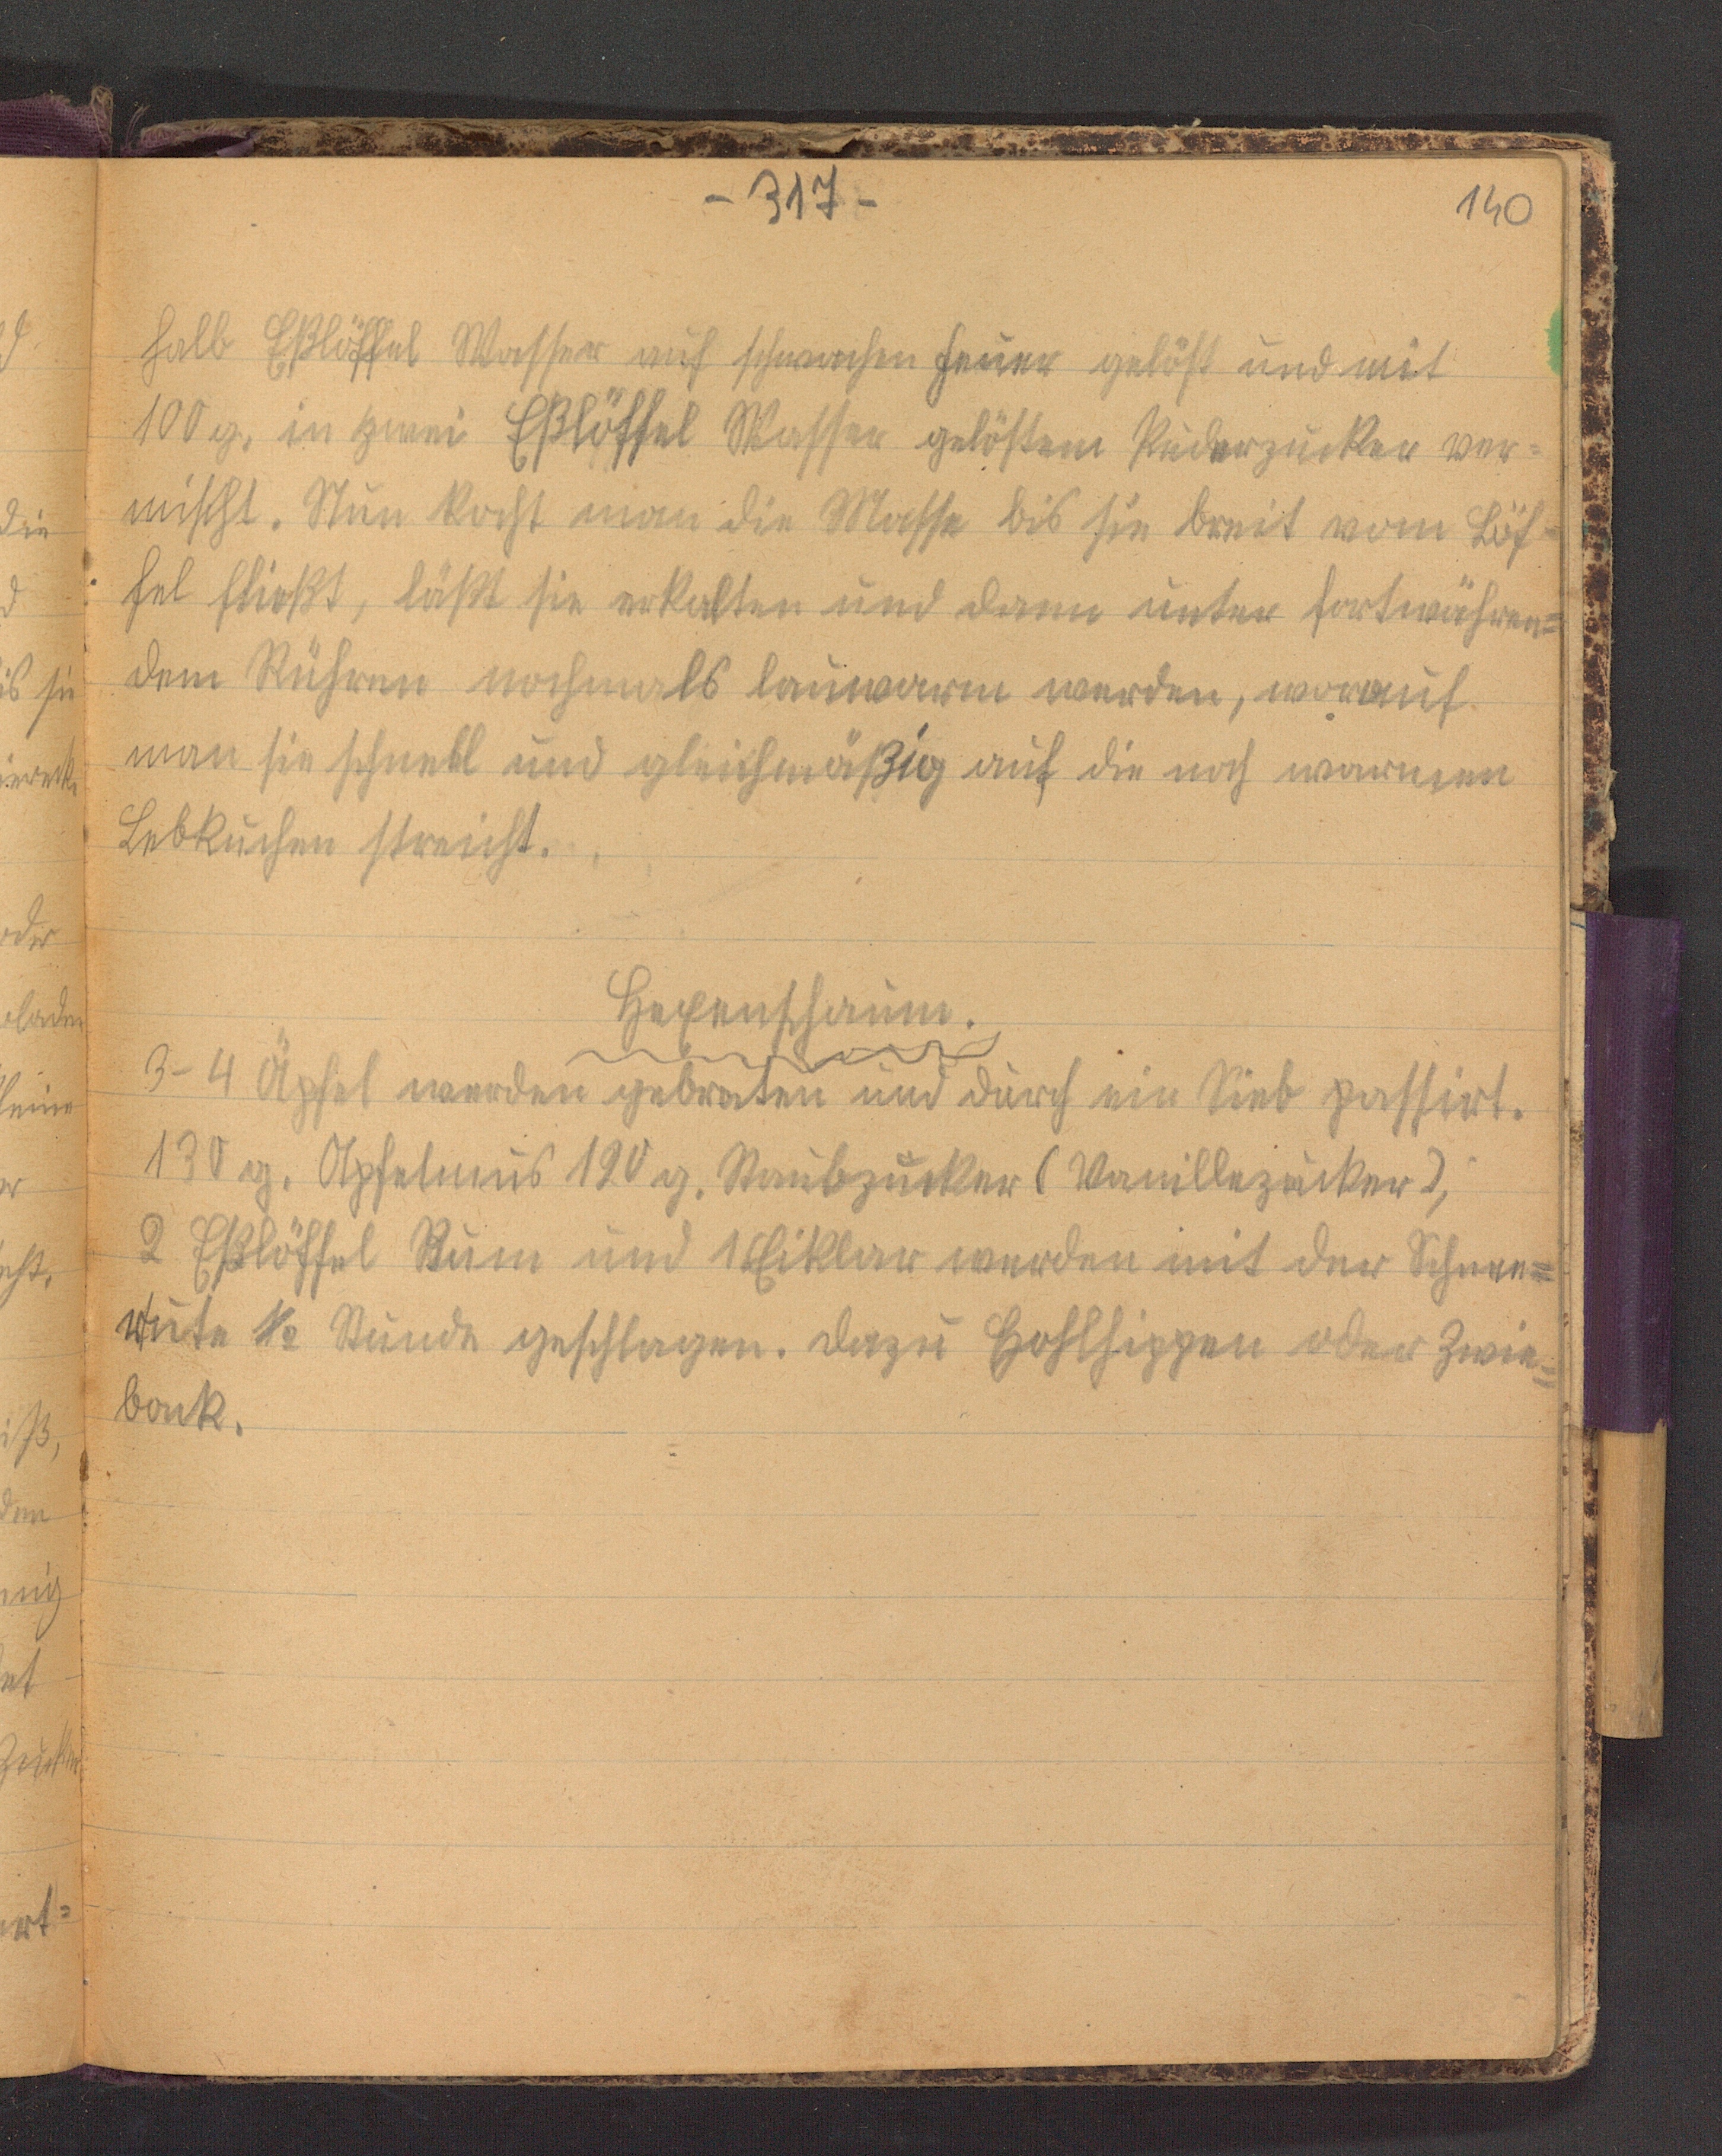 - 317 -
140
halb Eßlöffel Wasser auf schwachen Feuer gelöst und mit
100 g. in zwei Eßlöffel Wasser gelöstem Puderzucker ver=
mischt. Nun kocht man die Masse bis sie breit vom Löf=
fel fließt, läßt sie erkalten und dann unter fortwähren=
dem Rühren nochmals lauwarm werden, worauf
man sie schnell und gleichmäßig auf die noch warmen
Lebkuchen streicht.
Hexenschaum.
3-4 Äpfel werden gebraten und durch ein Sieb passirt.
130 g. Apfelmus 120 g. Staubzucker (Vanillezucker),
2 Eßlöffel Rum und 1 Eiklar werden mit der Schnee=
rute 1/2 Stunde geschlagen. Dazu Hohlhippen oder Zwie=
back.